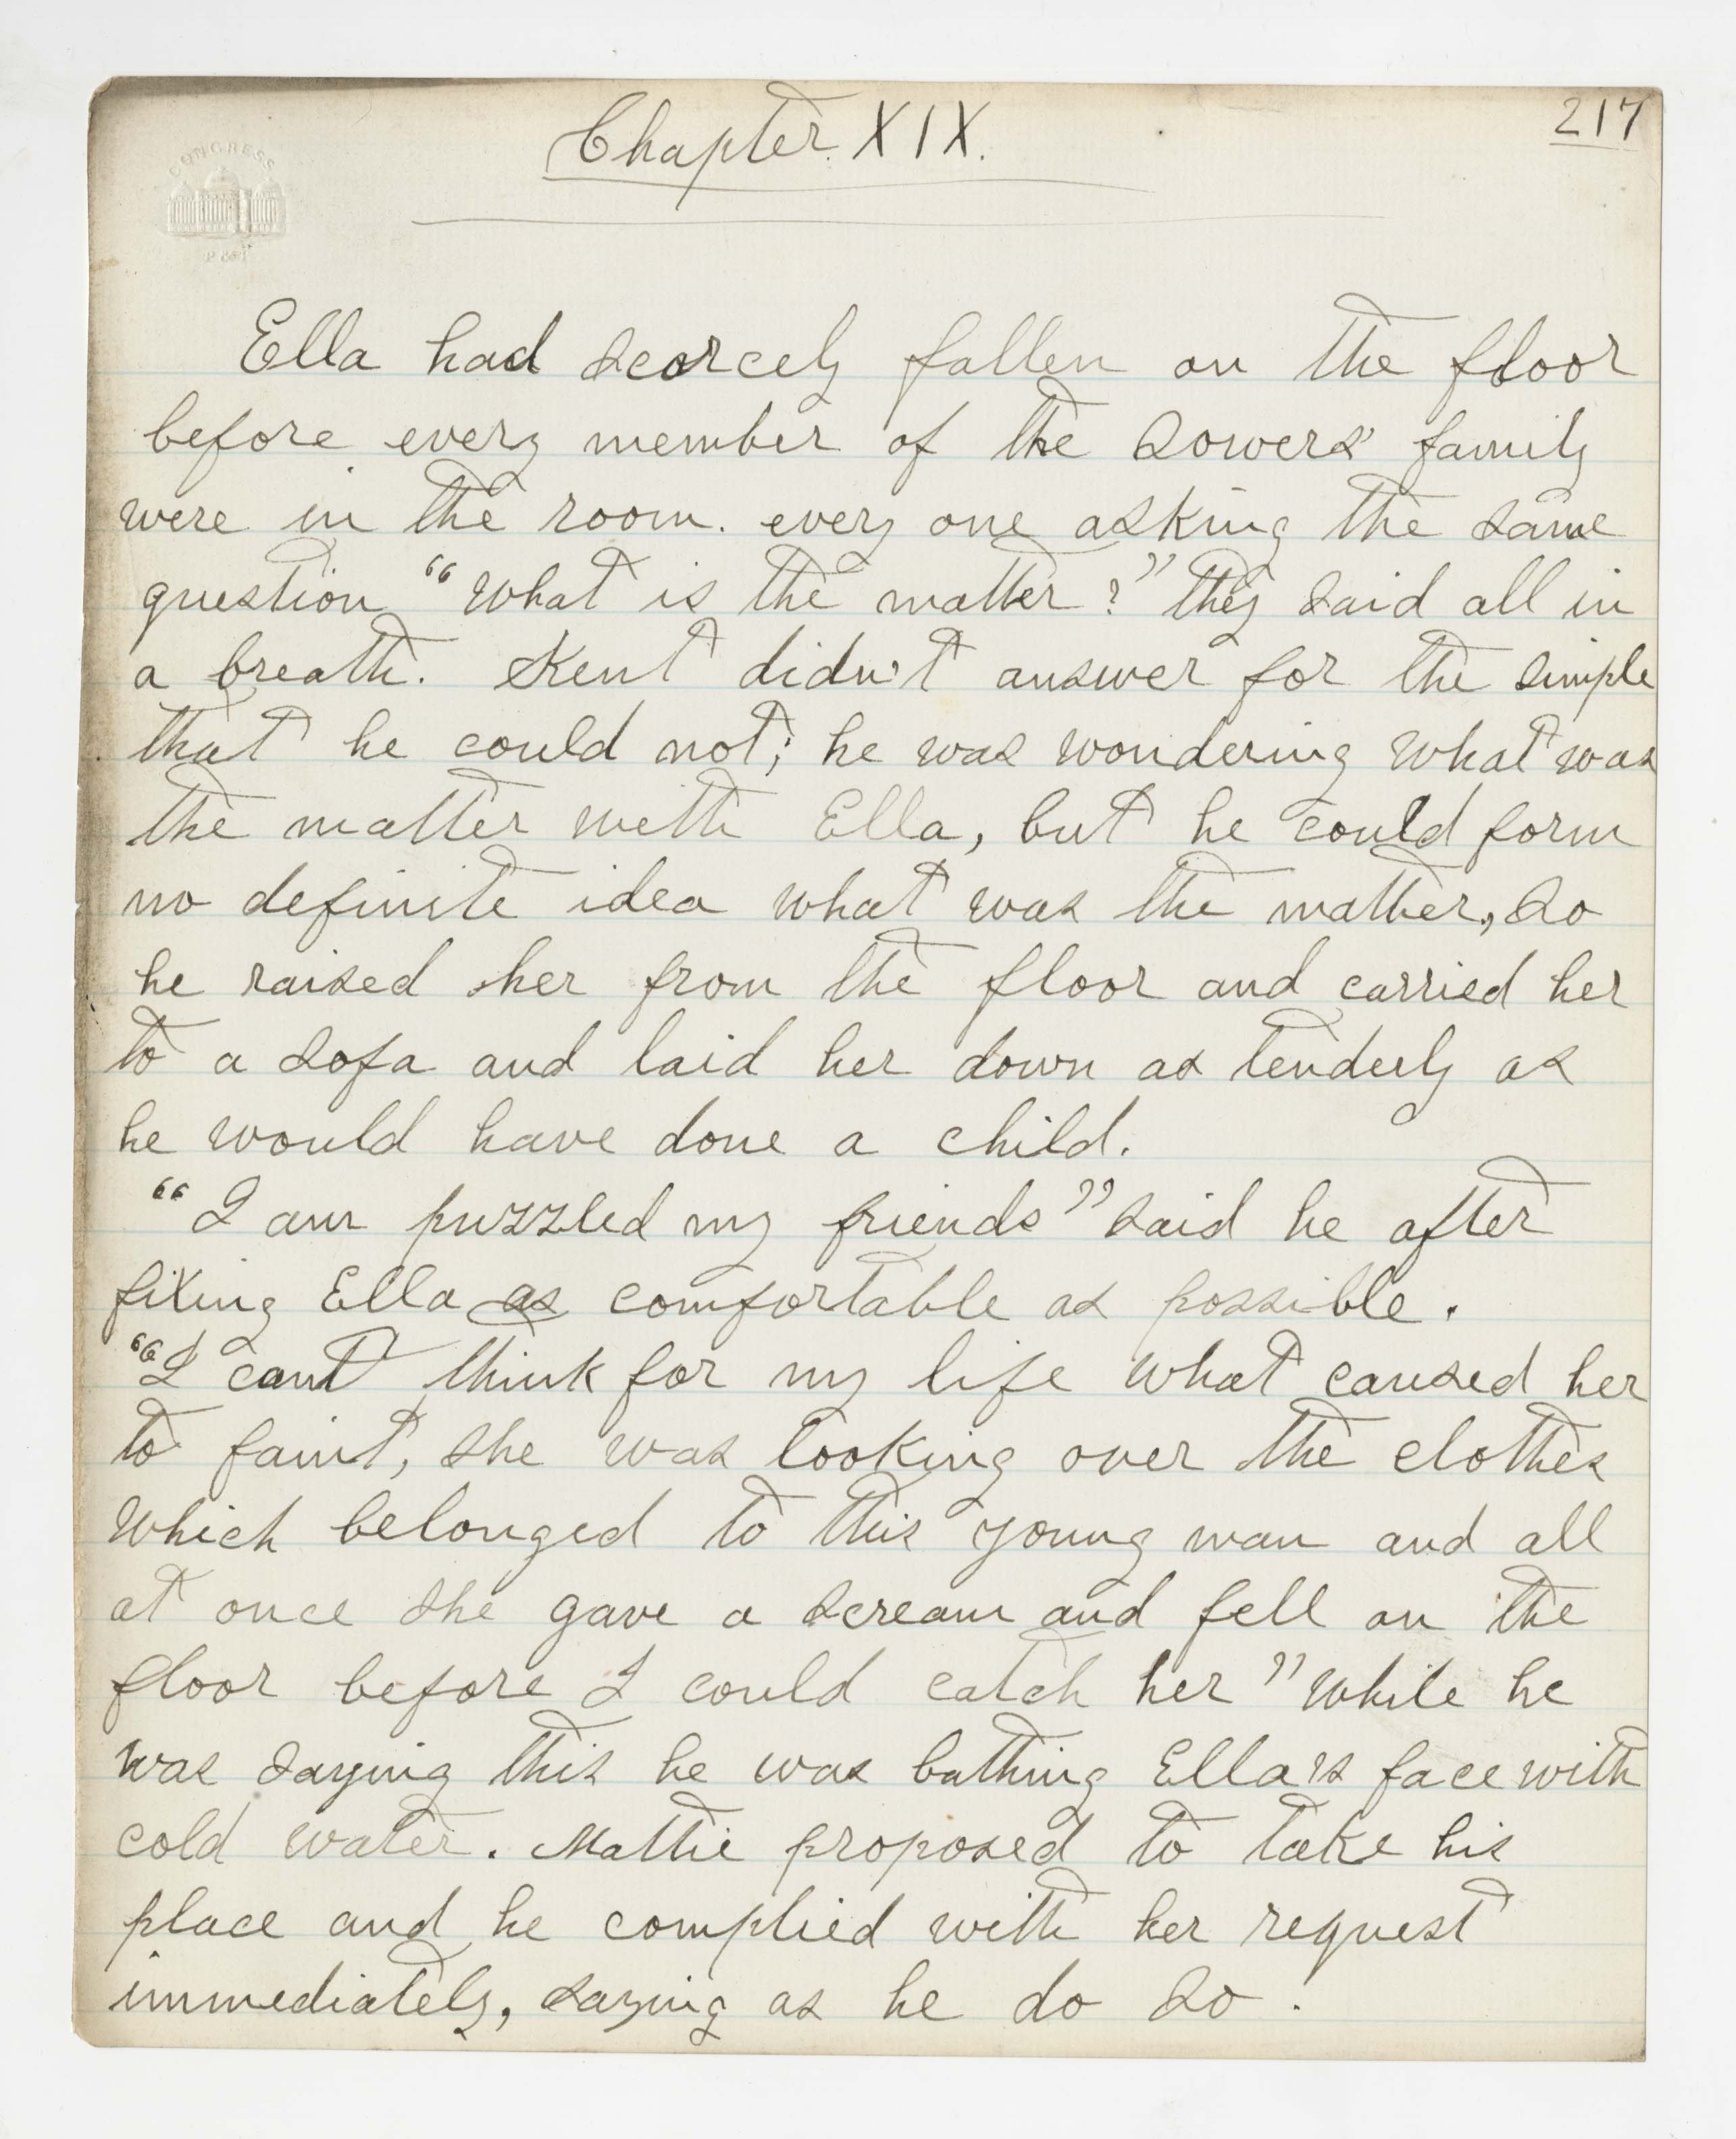 Chapter XIX.
217
CONGRESS
Ella had scarcely fallen on the floor
before every member of the Sowers' family
were in the room. every one asking the same
question "What is the matter?" they said all in
a breath. Kent didn't answer for the simple
that he could not; he was wondering what was
the matter with Ella, but he could form
no definite idea what was the matter, So
he raised her from the floor and carried her
to a sofa and laid her down as tenderly as
he would have done a child.
"I am puzzled my friends" said he after
fixing Ella as comfortable as possible.
"I cant think for my life what caused her
to faint, she was looking over the clothes
which belonged to this young man and all
at once she gave a scream and fell on the
floor before I could catch her" while he
was saying this he was bathing Ella's face with
cold water. Mattie proposed to take his
place and he complied with her request
immediately, saying as he do so.